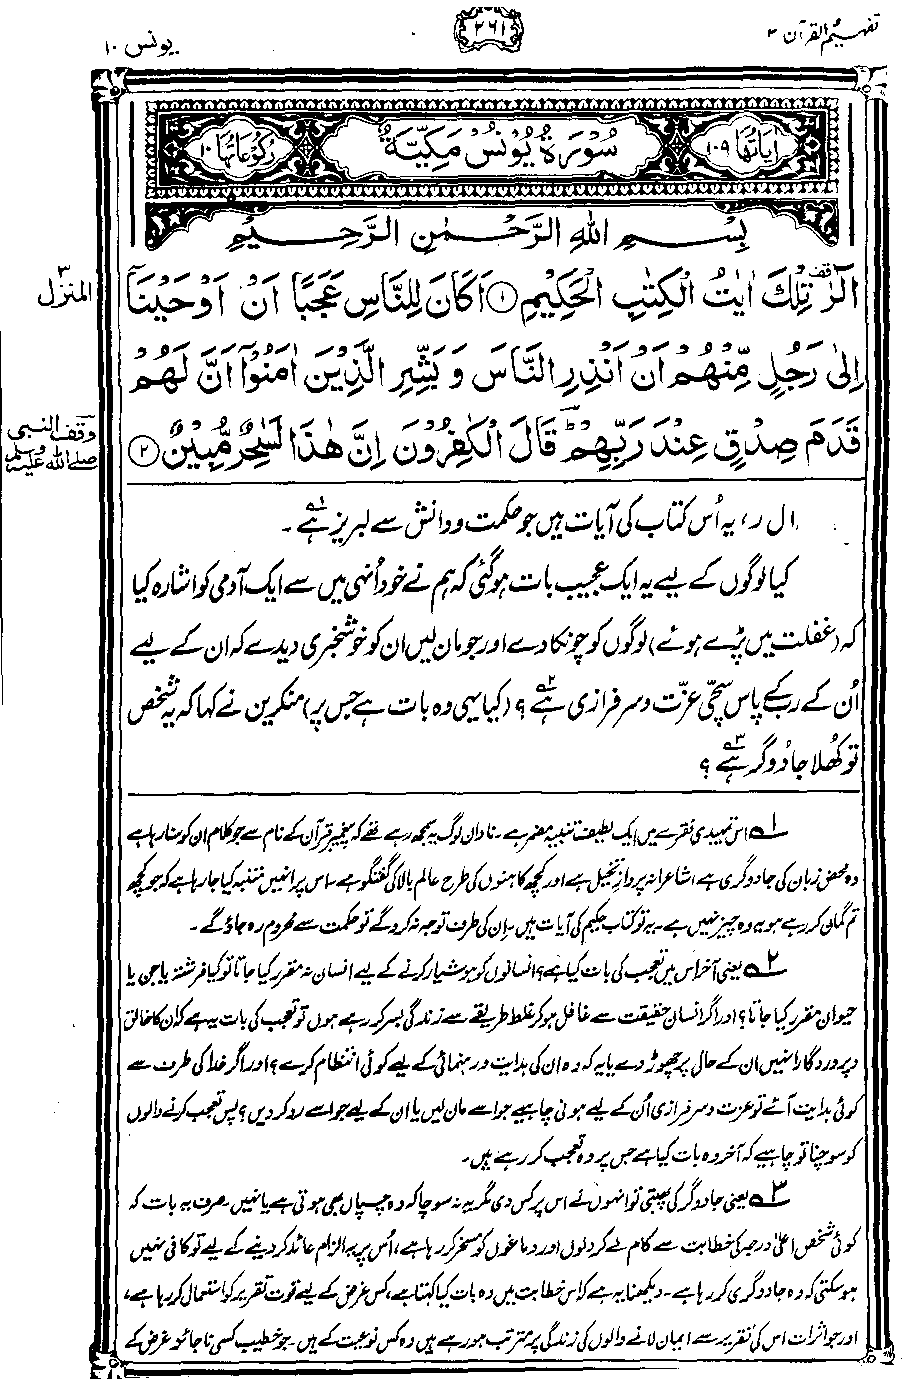 تفہیم القرآن ۲
۲۶۱
یونس ۱۰
اٰیَاتُهَا ۱۰۹
سُوْرَةُ یُوْنُسَ مَكِّیَّةٌ
رُكُوْعَاتُهَا ۱۰
بِسْمِ اللّٰهِ الرَّحْمٰنِ الرَّحِیْمِ
الٓرٰ تِلْكَ اٰیٰتُ الْكِتٰبِ الْحَكِیْمِ ﴿۱﴾ اَكَانَ لِلنَّاسِ عَجَبًا اَنْ اَوْحَیْنَاۤ
المنزل ۳
اِلٰی رَجُلٍ مِّنْهُمْ اَنْ اَنْذِرِ النَّاسَ وَ بَشِّرِ الَّذِیْنَ اٰمَنُوْۤا اَنَّ لَهُمْ
قَدَمَ صِدْقٍ عِنْدَ رَبِّهِمْ ؕ قَالَ الْكٰفِرُوْنَ اِنَّ هٰذَا لَسٰحِرٌ مُّبِیْنٌ ﴿۲﴾
وقف النبی
صلی اللہ علیہ وسلم
ال ر، یہ اُس کتاب کی آیات ہیں جو حکمت و دانش سے لبریز ہے۱۔
کیا لوگوں کے لیے یہ ایک عجیب بات ہوگئی کہ ہم نے خود اُنہی میں سے ایک آدمی کو اشارہ کیا
کہ (غفلت میں پڑے ہوئے) لوگوں کو چونکا دے اور جو مان لیں ان کو خوشخبری دیدے کہ ان کے لیے
اُن کے رب کے پاس سچی عزّت و سرفرازی ہے۲؟ (کیا یہی وہ بات ہے جس پر) منکرین نے کہا کہ یہ شخص
تو کھلا جادُوگر ہے۳؟
۱ اس تمہیدی فقرے میں ایک لطیف تنبیہ مضمر ہے۔ نادان لوگ یہ سمجھ رہے تھے کہ پیغمبر قرآن کے نام سے جو کلام ان کو سنا رہا ہے
وہ محض زبان کی جادوگری ہے، شاعرانہ پروازِ تخیل ہے اور کچھ کاہنوں کی طرح عالم بالا کی گفتگو ہے۔ اس پر انہیں متنبہ کیا جا رہا ہے کہ جو کچھ
تم گمان کر رہے ہو یہ وہ چیز نہیں ہے۔ یہ تو کتاب حکیم کی آیات ہیں۔ ان کی طرف توجہ نہ کرو گے تو حکمت سے محروم رہ جاؤ گے۔
۲ یعنی آخر اس میں تعجب کی بات کیا ہے؟ انسانوں کو ہوشیار کرنے کے لیے انسان نہ مقرر کیا جاتا تو کیا فرشتہ یا جن یا
حیوان مقرر کیا جاتا؟ اور اگر انسان حقیقت سے غافل ہو کر غلط طریقے سے زندگی بسر کر رہے ہوں تو تعجب کی بات یہ ہے کہ ان کا خالق
و پروردگار انہیں ان کے حال پر چھوڑ دے یا یہ کہ وہ ان کی ہدایت و رہنمائی کے لیے کوئی انتظام کرے؟ اور اگر خدا کی طرف سے
کوئی ہدایت آئے تو عزت و سرفرازی اُن کے لیے ہونی چاہیے جو اسے مان لیں یا ان کے لیے جو اسے رد کر دیں؟ پس تعجب کرنے والوں
کو سوچنا تو چاہیے کہ آخر وہ بات کیا ہے جس پر وہ تعجب کر رہے ہیں۔
۳ یعنی جادوگر کی پھبتی تو انہوں نے اس پر کس دی مگر یہ نہ سوچا کہ وہ چسپاں بھی ہوتی ہے یا نہیں۔ صرف یہ بات کہ
کوئی شخص اعلیٰ درجہ کی خطابت سے کام لے کر دلوں اور دماغوں کو مسخر کر رہا ہے، اُس پر یہ الزام عائد کر دینے کے لیے تو کافی نہیں
ہو سکتی کہ وہ جادوگری کر رہا ہے۔ دیکھنا یہ ہے کہ اس خطابت میں وہ بات کیا کہتا ہے، کس غرض کے لیے قوت تقریر کو استعمال کر رہا ہے،
اور جو اثرات اس کی تقریر سے ایمان لانے والوں کی زندگی پر مترتب ہو رہے ہیں وہ کس نوعیت کے ہیں۔ جو خطیب کسی ناجائز غرض کے